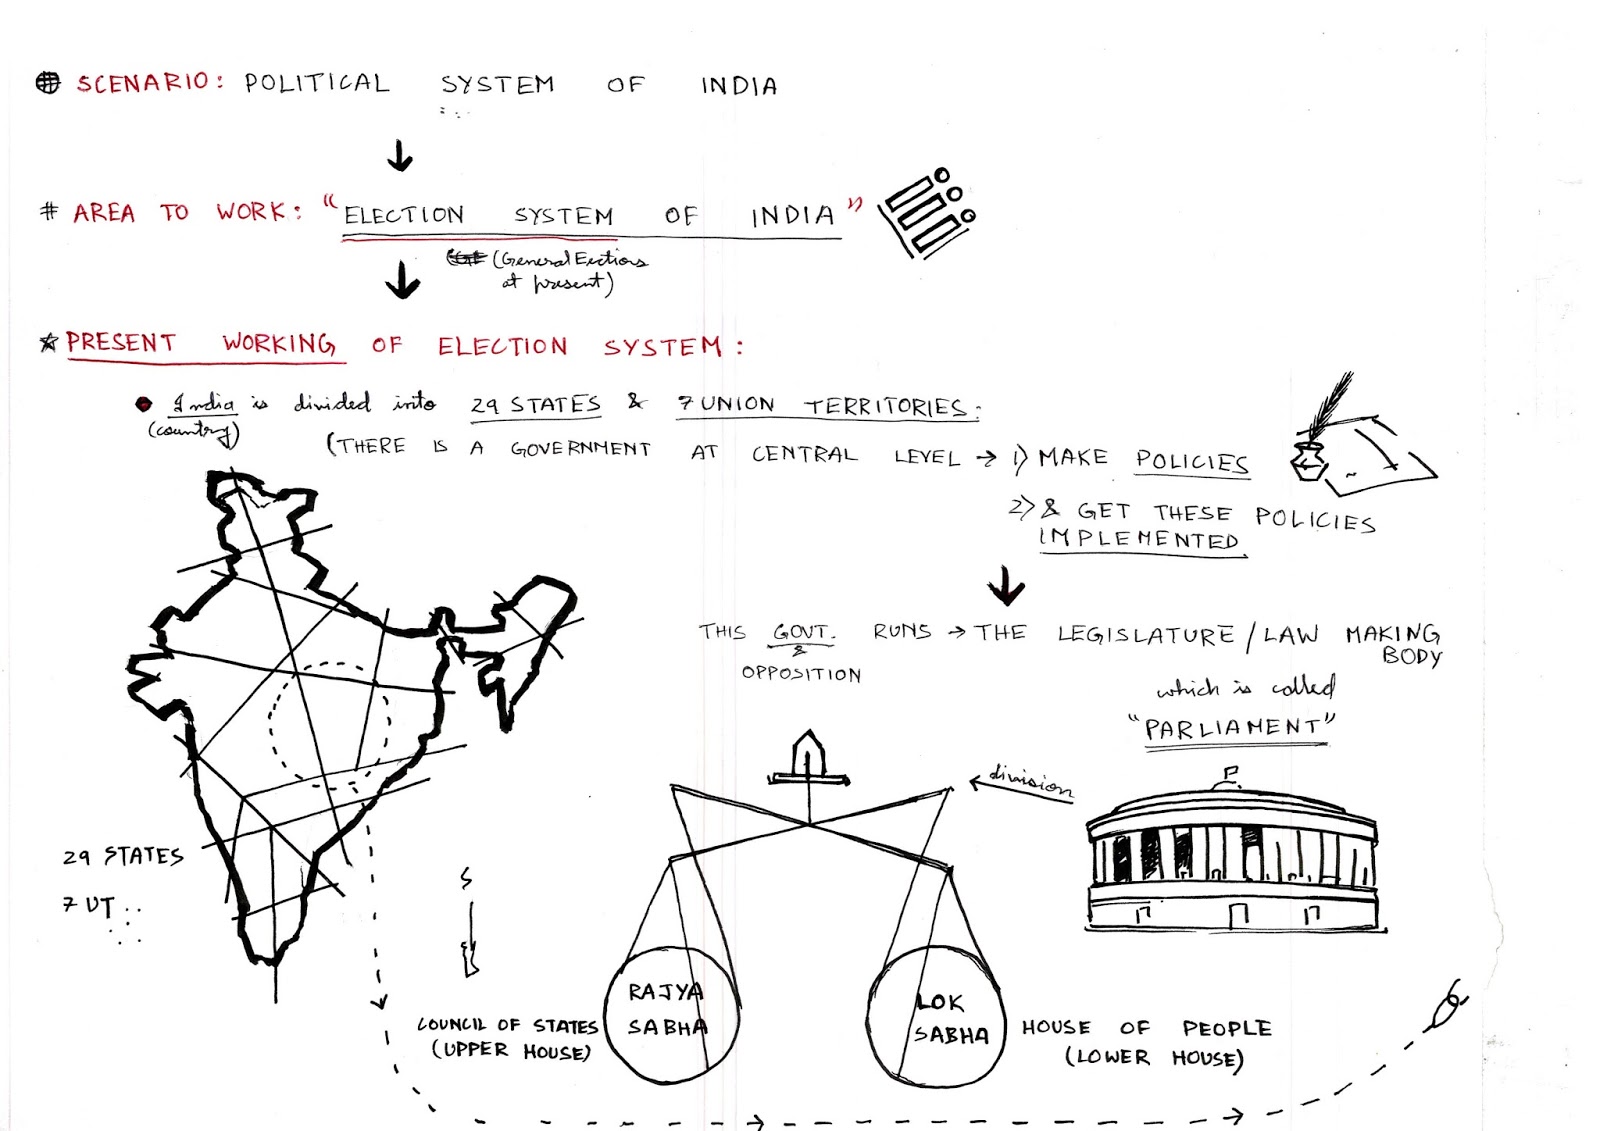 SCENARIO: POLITICAL SYSTEM OF INDIA
# AREA TO WORK: "ELECTION SYSTEM OF INDIA"
(General Eections
at present)
PRESENT WORKING OF ELECTION SYSTEM:
India is divided into 29 STATES & 7 UNION TERRITORIES:
(country)
(THERE IS A GOVERNMENT AT CENTRAL LEVEL → 1) MAKE POLICIES
2) & GET THESE POLICIES
IMPLEMENTED
THIS GOVT. RUNS → THE LEGISLATURE / LAW MAKING
BODY
&
OPPOSITION
which is called
"PARLIAMENT"
division
29 STATES
7 UT
RAJYA
SABHA
COUNCIL OF STATES
(UPPER HOUSE)
LOK
SABHA
HOUSE OF PEOPLE
(LOWER HOUSE)